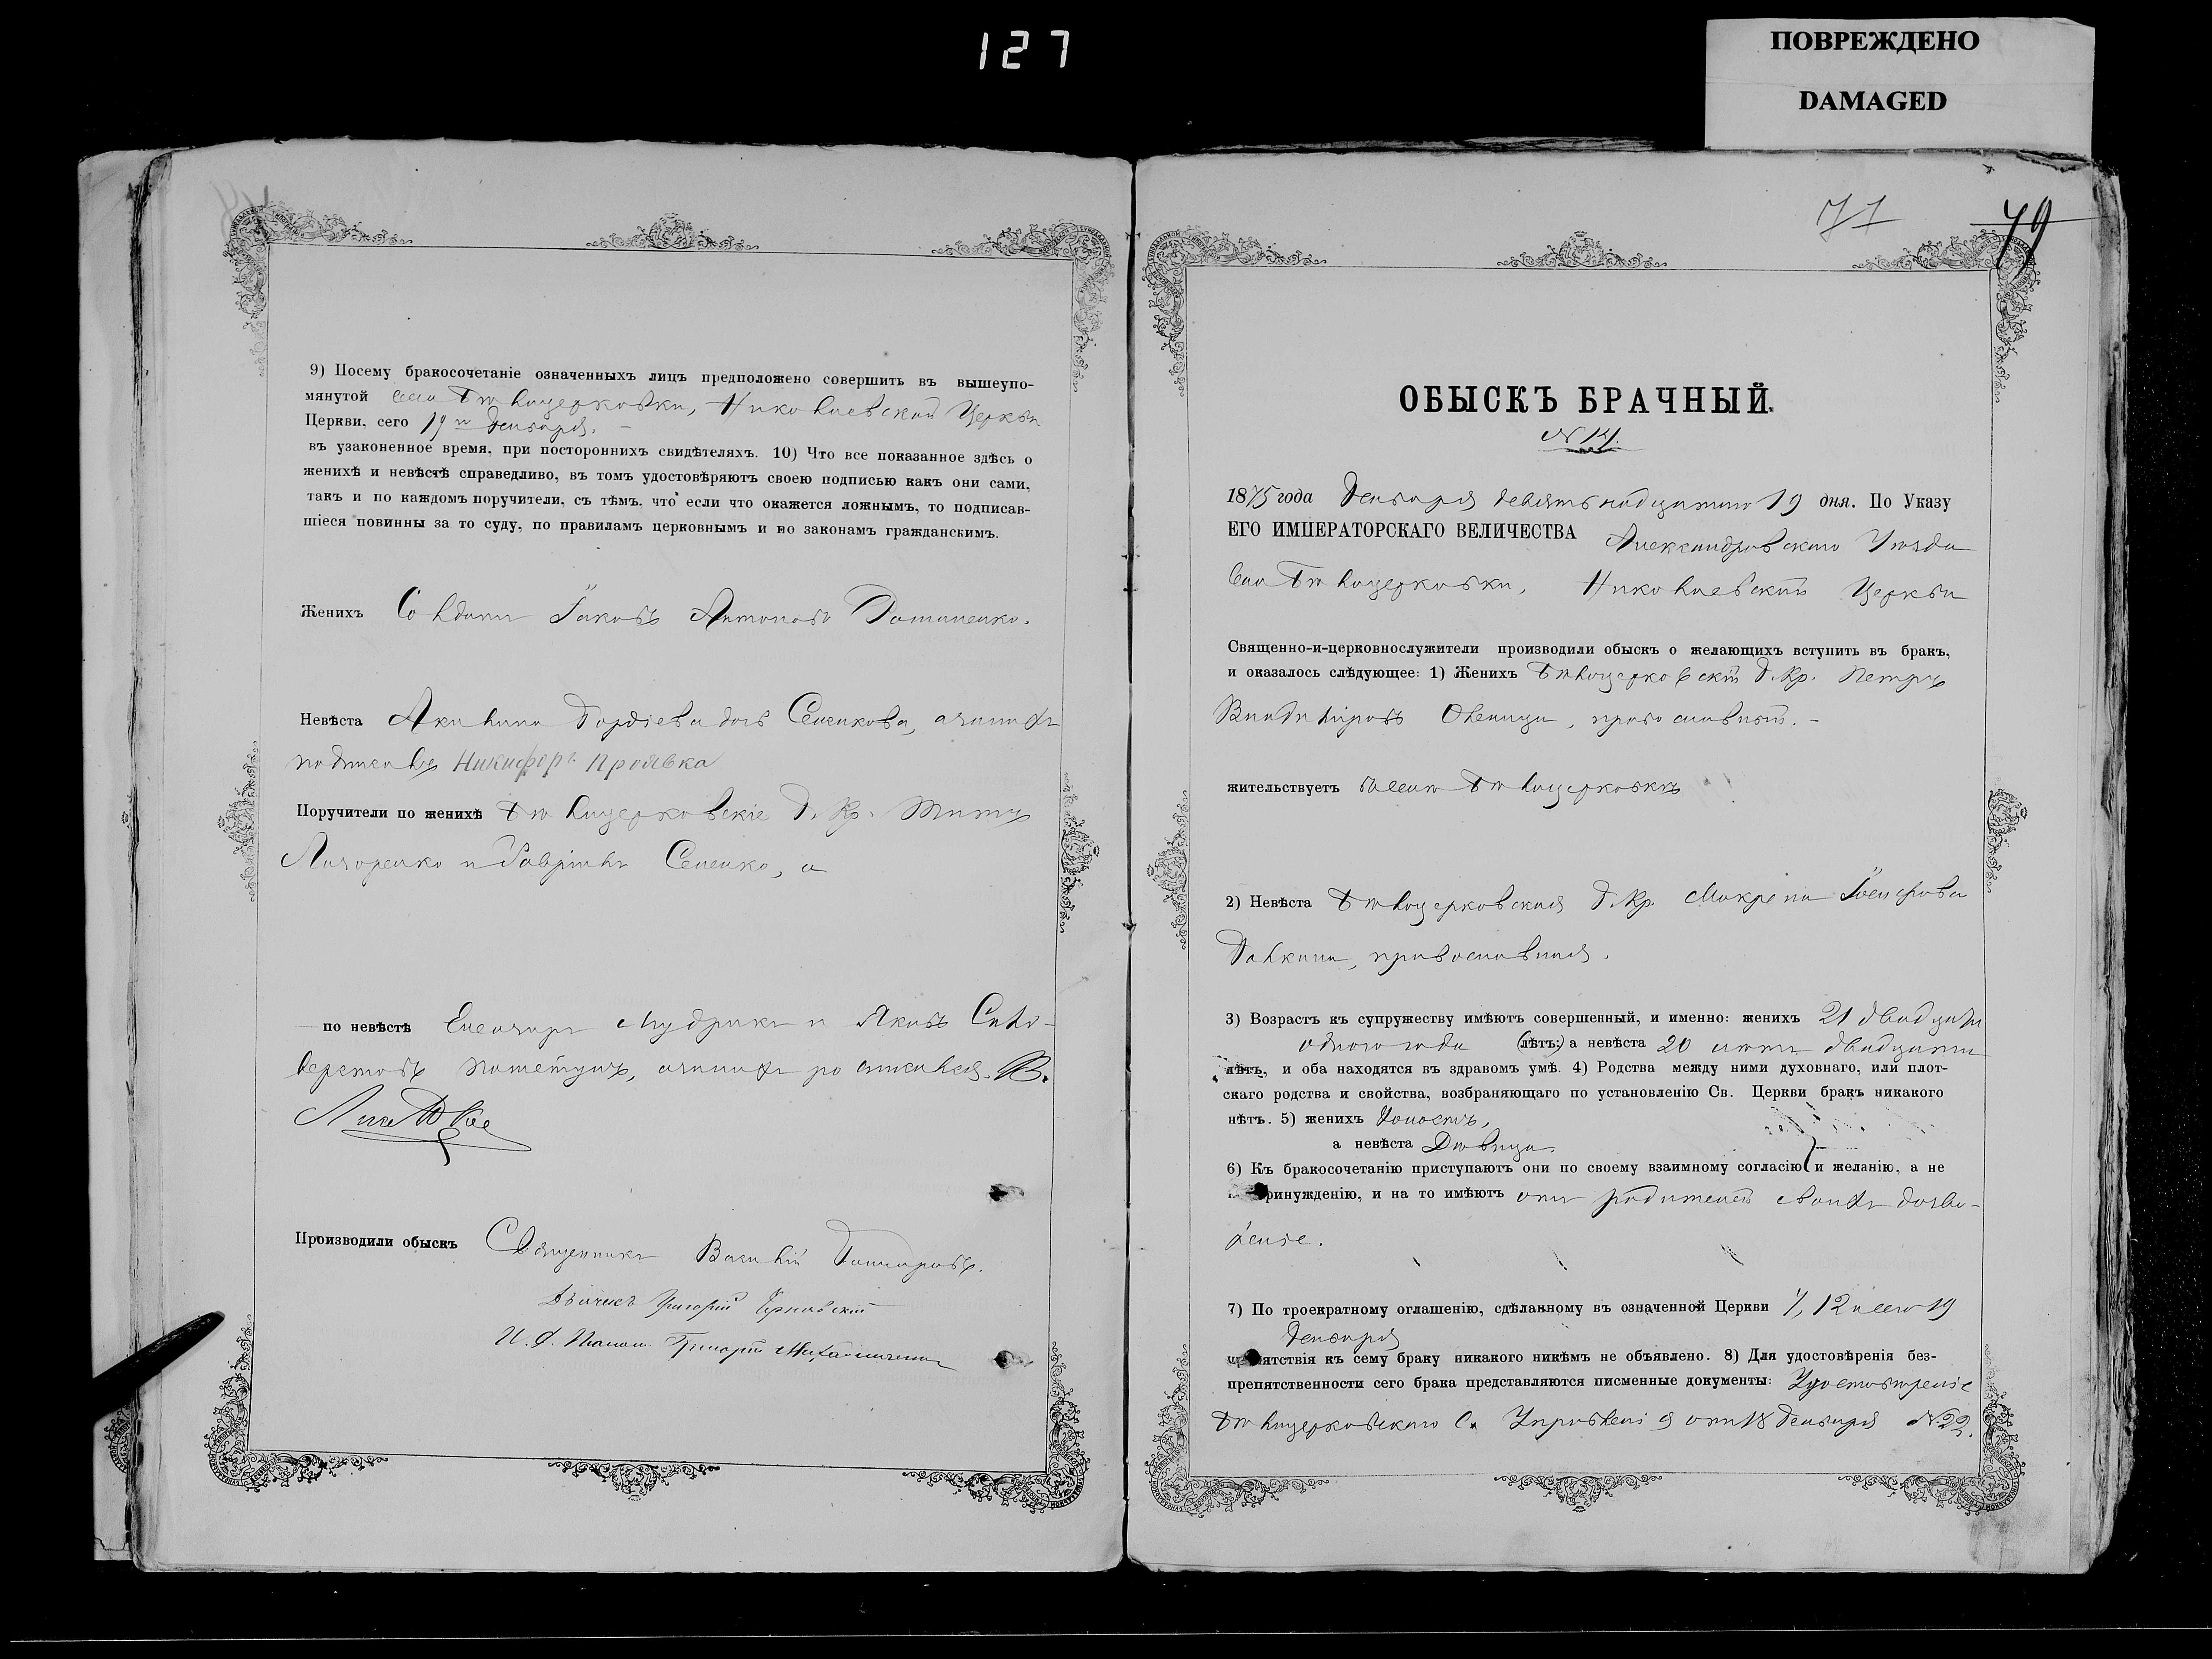 127
ПОВРЕЖДЕНО
DAMAGED
9) Посему бракосочетаніе означенныхъ лицъ предположено совершить въ вышеупо-
мянутой села Бѣлоцерковки, Николаевской Церкви
Церкви, сего 19го Декабря.
въ узаконенное время, при постороннихъ свидѣтеляхъ. 10) Что все показанное здѣсь о
женихѣ и невѣстѣ справедливо, въ томъ удостовѣряютъ своею подписью какъ они сами,
такъ и по каждомъ поручители, съ тѣмъ, что если что окажется ложнымъ, то подписав-
шіеся повинны за то суду, по правиламъ церковнымъ и по законамъ гражданскимъ.
Женихъ Солдатъ Іаковъ Антоновъ
Невѣста Акилина Гордіева дочь Семенкова, а за нихъ
подписалъ Никифоръ Проявка
Поручители по женихѣ Бѣлоцерковскіе Г. Кр. Титъ
и Гавріилъ Сененко, а
по невѣстѣ Елеазаръ Мудракъ и Яковъ Сели-
верстовъ а за нихъ росписался В.
Производили обыскъ Священникъ Василій Гончаровъ.
Дьячекъ Григорій
И. д. Поном. Григорій
71
79
ОБЫСКЪ БРАЧНЫЙ.
№ 14.
1875 года Декабря девятнадцатаго 19 дня. По Указу
ЕГО ИМПЕРАТОРСКАГО ВЕЛИЧЕСТВА Александровскаго Уѣзда
села Бѣлоцерковки, Николаевской Церкви
Священно-и-церковнослужители производили обыскъ о желающихъ вступить въ бракъ,
и оказалось слѣдующее: 1) Женихъ Бѣлоцерковскій Г. Кр. Петръ
Владиміровъ православный. -
жительствуетъ въ селѣ Бѣлоцерковкѣ
2) Невѣста Бѣлоцерковская Г. Кр. Макрена Іосифова
Галкина, православная.
3) Возрастъ къ супружеству имѣютъ совершенный, и именно: женихъ 21 двадцати
одного года (лѣтъ:) а невѣста 20 лѣтъ двадцати
лѣтъ, и оба находятся въ здравомъ умѣ. 4) Родства между ними духовнаго, или плот-
скаго родства и свойства, возбраняющаго по установленію Св. Церкви бракъ никакого
нѣтъ. 5) женихъ холостъ,
а невѣста Дѣвица
6) Къ бракосочетанію приступаютъ они по своему взаимному согласію и желанію, а не
ринужденію, и на то имѣютъ отъ родителей своихъ дозво-
леніе.
7) По троекратному оглашенію, сдѣланному въ означенной Церкви 7, 12 и сего 19
Декабря
ятствія къ сему браку никакого никѣмъ не объявлено. 8) Для удостовѣренія без-
препятственности сего брака представляются писменные документы: Удостовѣреніе
Бѣлоцерковскаго С. Управленія отъ 18 Декабря № 22.